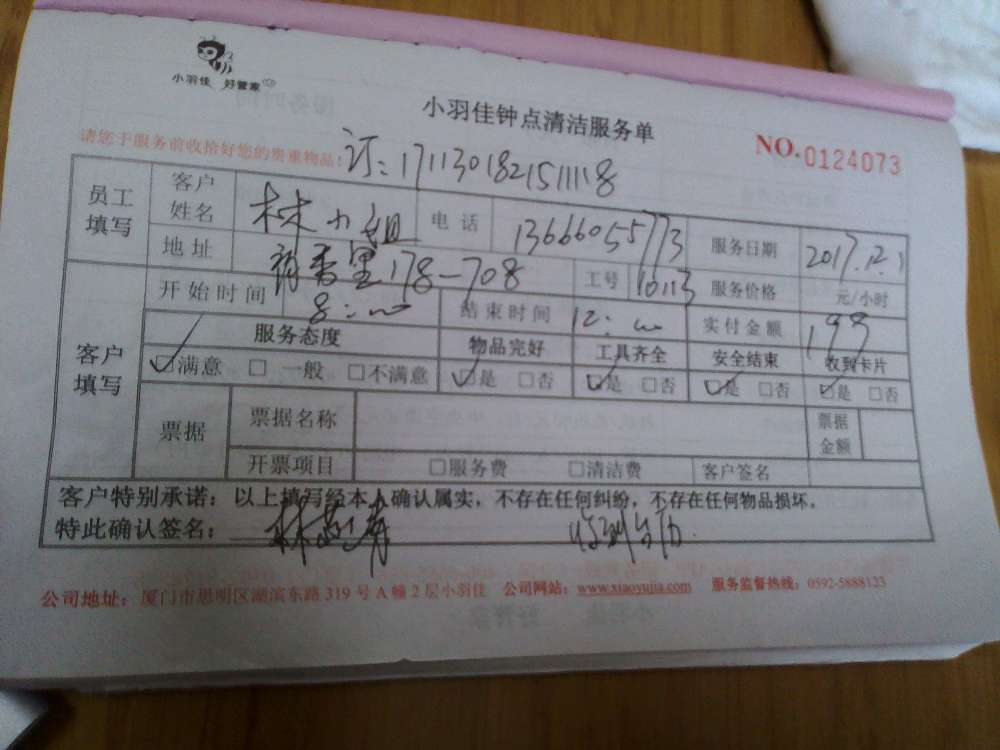 小羽佳 好管家
小羽佳钟点清洁服务单
请您于服务前收拾好您的贵重物品!
订:171130182151118
NO.0124073
员工填写 客户姓名 林小姐 电话 13666055773 服务日期 2017.12.1
地址 178-708 工号 10113 服务价格 元/小时
客户填写 开始时间 8:00 结束时间 12:00 实付金额 199
服务态度 物品完好 工具齐全 安全结束 收到卡片
☑满意 □一般 □不满意 ☑是 □否 ☑是 □否 ☑是 □否 ☑是 □否
票据 票据名称 票据金额
开票项目 □服务费 □清洁费 客户签名
客户特别承诺:以上填写经本人确认属实,不存在任何纠纷,不存在任何物品损坏。
特此确认签名:
公司地址:厦门市思明区湖滨东路319号A幢2层小羽佳 公司网站:www.xiaoyujia.com 服务监督热线:0592-5888123